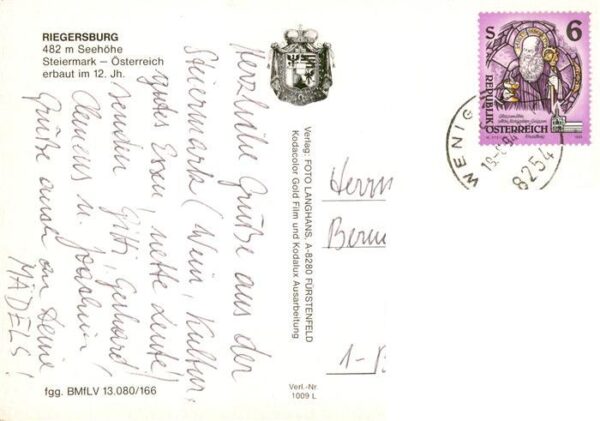 RIEGERSBURG
482 m Seehöhe
Steiermark – Österreich
erbaut im 12. Jh.
Herzliche Grüße aus der
Steiermark (Wein, Kultur,
gutes Essen, nette Leute!)
senden Gitti, Gerhard,
Clemens u.
Grüße auch an Deine
MÄDELS!
fgg. BMfLV 13.080/166
Verlag: FOTO LANGHANS, A-8280 FÜRSTENFELD
Kodacolor Gold Film und Kodalux Ausarbeitung
Verl.-Nr.
1009 L
S 6
REPUBLIK
ÖSTERREICH
WENIG
8254
Herrn
1-